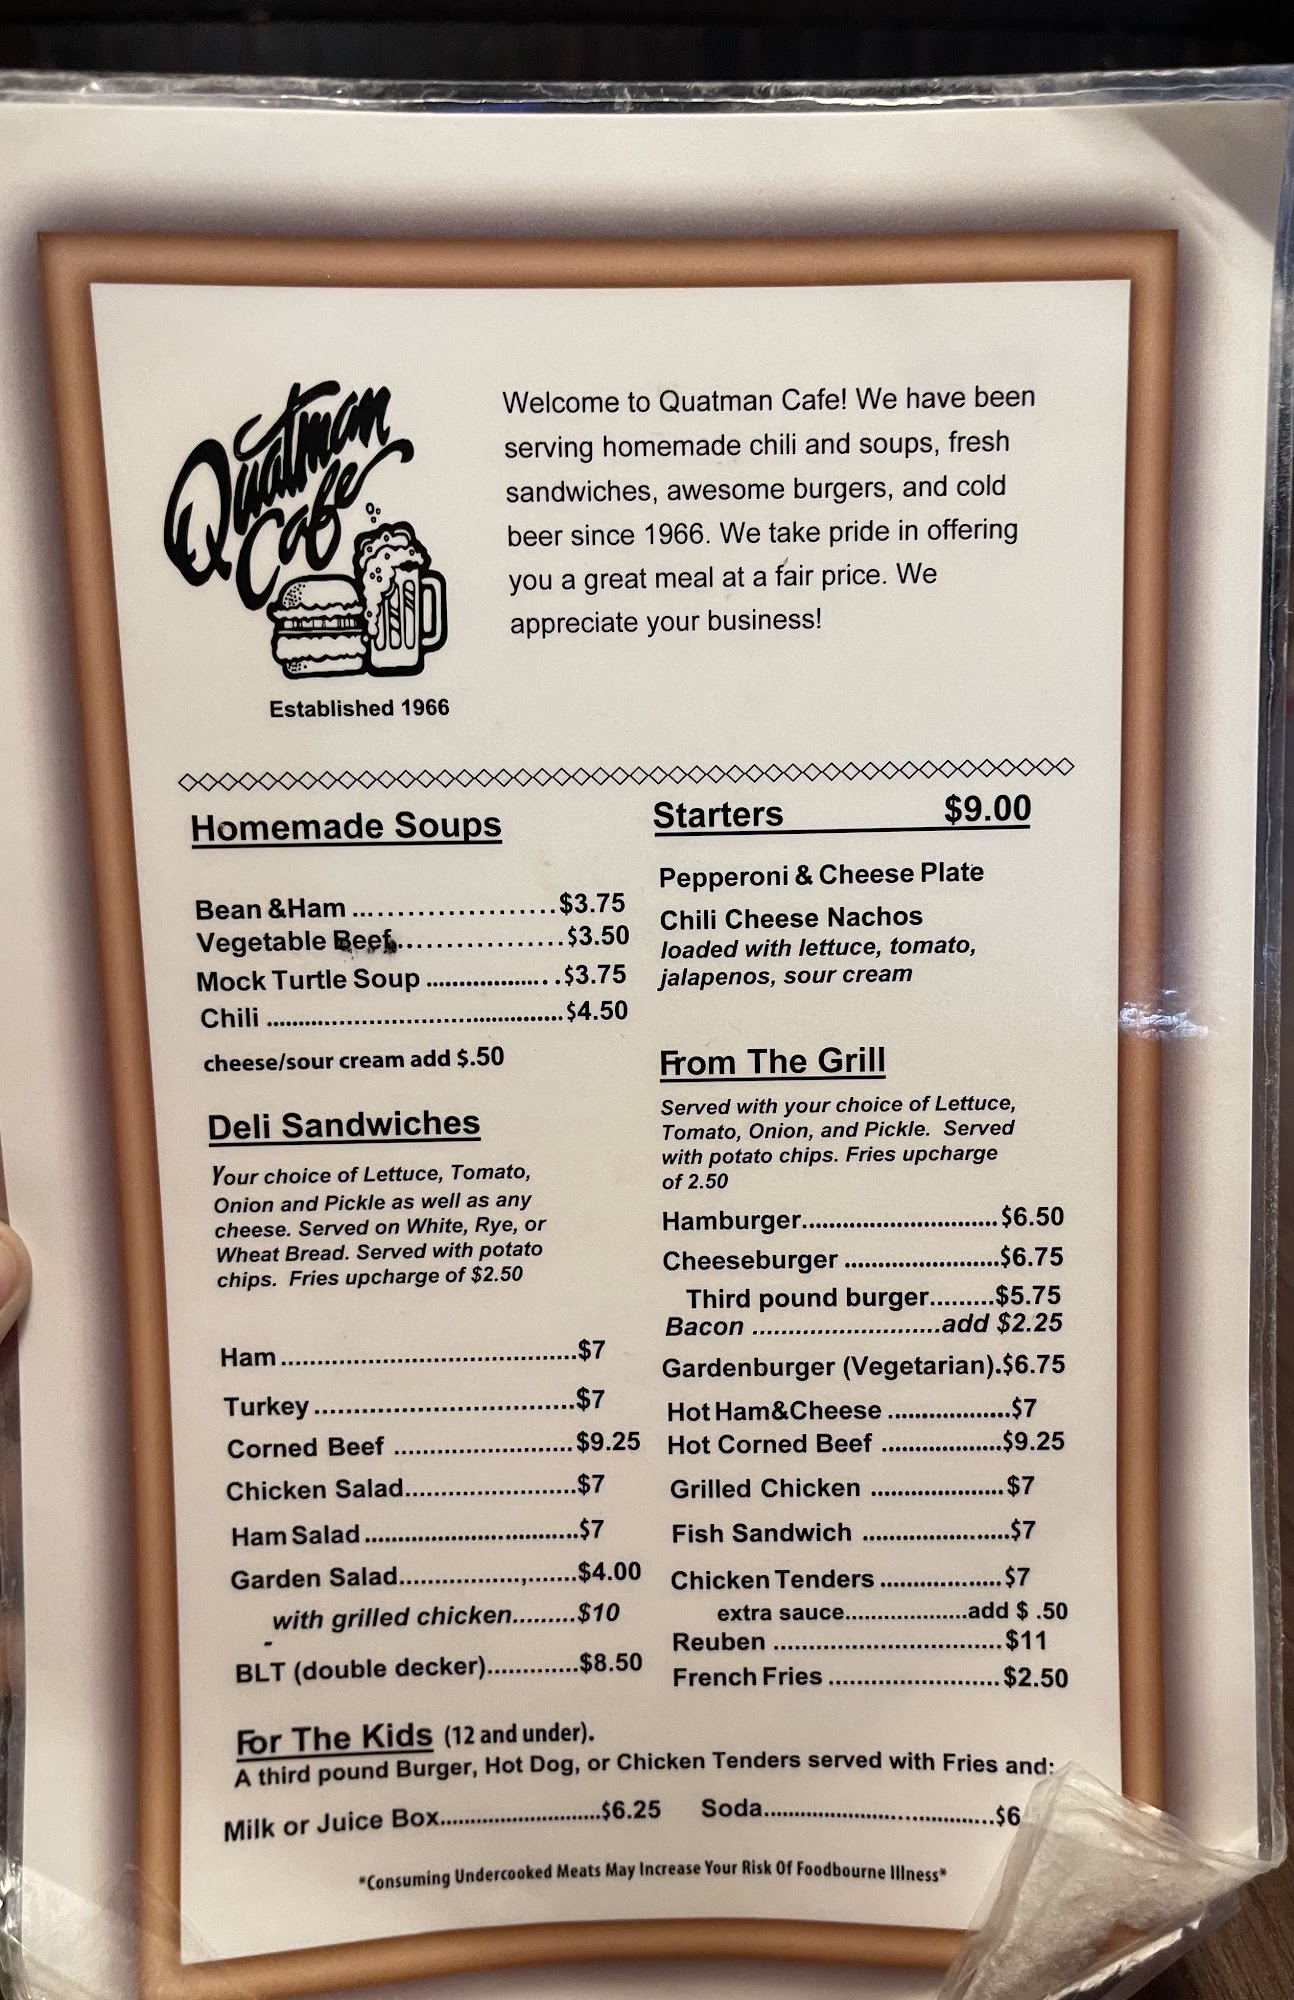 Quatman
Cafe
Established 1966
Welcome to Quatman Cafe! We have been
serving homemade chili and soups, fresh
sandwiches, awesome burgers, and cold
beer since 1966. We take pride in offering
you a great meal at a fair price. We
appreciate your business!
Homemade Soups
Bean &Ham ........................$3.75
Vegetable Beef...................$3.50
Mock Turtle Soup .....................$3.75
Chili .............................................$4.50
cheese/sour cream add $.50
Deli Sandwiches
Your choice of Lettuce, Tomato,
Onion and Pickle as well as any
cheese. Served on White, Rye, or
Wheat Bread. Served with potato
chips. Fries upcharge of $2.50
Ham..........................................$7
Turkey..................................$7
Corned Beef .........................$9.25
Chicken Salad........................$7
Ham Salad..............................$7
Garden Salad................,.......$4.00
with grilled chicken.........$10
-
BLT (double decker).............$8.50
Starters $9.00
Pepperoni & Cheese Plate
Chili Cheese Nachos
loaded with lettuce, tomato,
jalapenos, sour cream
From The Grill
Served with your choice of Lettuce,
Tomato, Onion, and Pickle. Served
with potato chips. Fries upcharge
of 2.50
Hamburger..............................$6.50
Cheeseburger ........................$6.75
Third pound burger.........$5.75
Bacon ...........................add $2.25
Gardenburger (Vegetarian).$6.75
Hot Ham&Cheese ...................$7
Hot Corned Beef ...................$9.25
Grilled Chicken ....................$7
Fish Sandwich ......................$7
Chicken Tenders ...................$7
extra sauce.....................add $ .50
Reuben ..................................$11
French Fries .........................$2.50
For The Kids (12 and under).
A third pound Burger, Hot Dog, or Chicken Tenders served with Fries and:
Milk or Juice Box..........................$6.25 Soda.....................................$6
*Consuming Undercooked Meats May Increase Your Risk Of Foodbourne Illness*